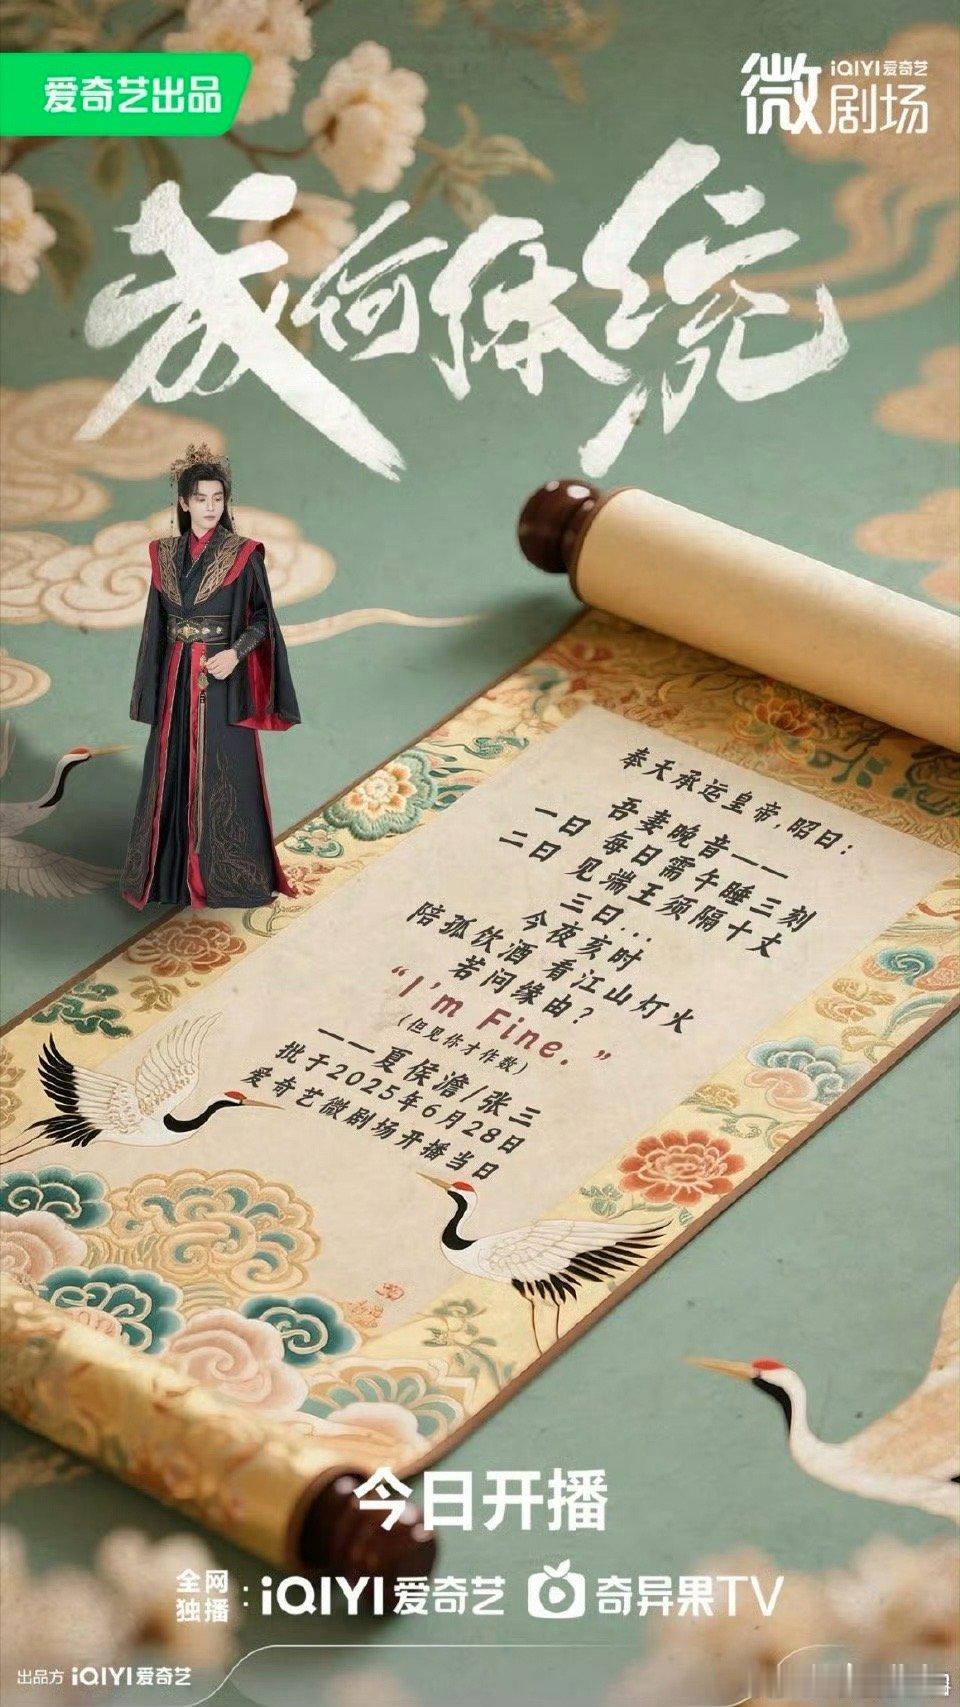 爱奇艺出品
微剧场
iQIYI爱奇艺
成何体统
奉天承运皇帝，昭日：
吾妻晚音——
一日 每日需午睡三刻
二日 见端王须隔十丈
三日...
今夜亥时
陪孤饮酒 看江山灯火
若问缘由？
“I'm Fine.”
(但见你才作数)
——夏侯澹/张三
批于2025年6月28日
爱奇艺微剧场开播当日
今日开播
全网独播：iQIYI爱奇艺 奇异果TV
出品方 iQIYI爱奇艺